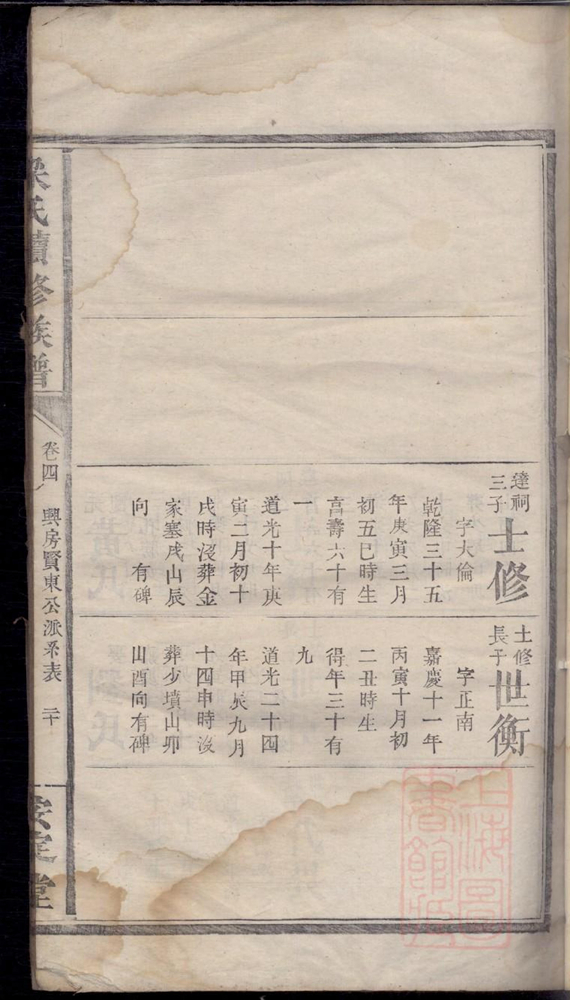 達祠
三子
士修
字大倫
乾隆三十五
年庚寅三月
初五巳時生
享壽六十有
一
道光十年庚
寅二月初十
戌時沒葬金
家塞戌山辰
向 有碑
士修
長子
世衡
字正南
嘉慶十一年
丙寅十月初
二丑時生
得年三十有
九
道光二十四
年甲辰九月
十四申時沒
葬少墳山卯
山酉向有碑
氏續修族譜
卷四
興房賢東公派系表 二十
定堂
上海圖
書館藏